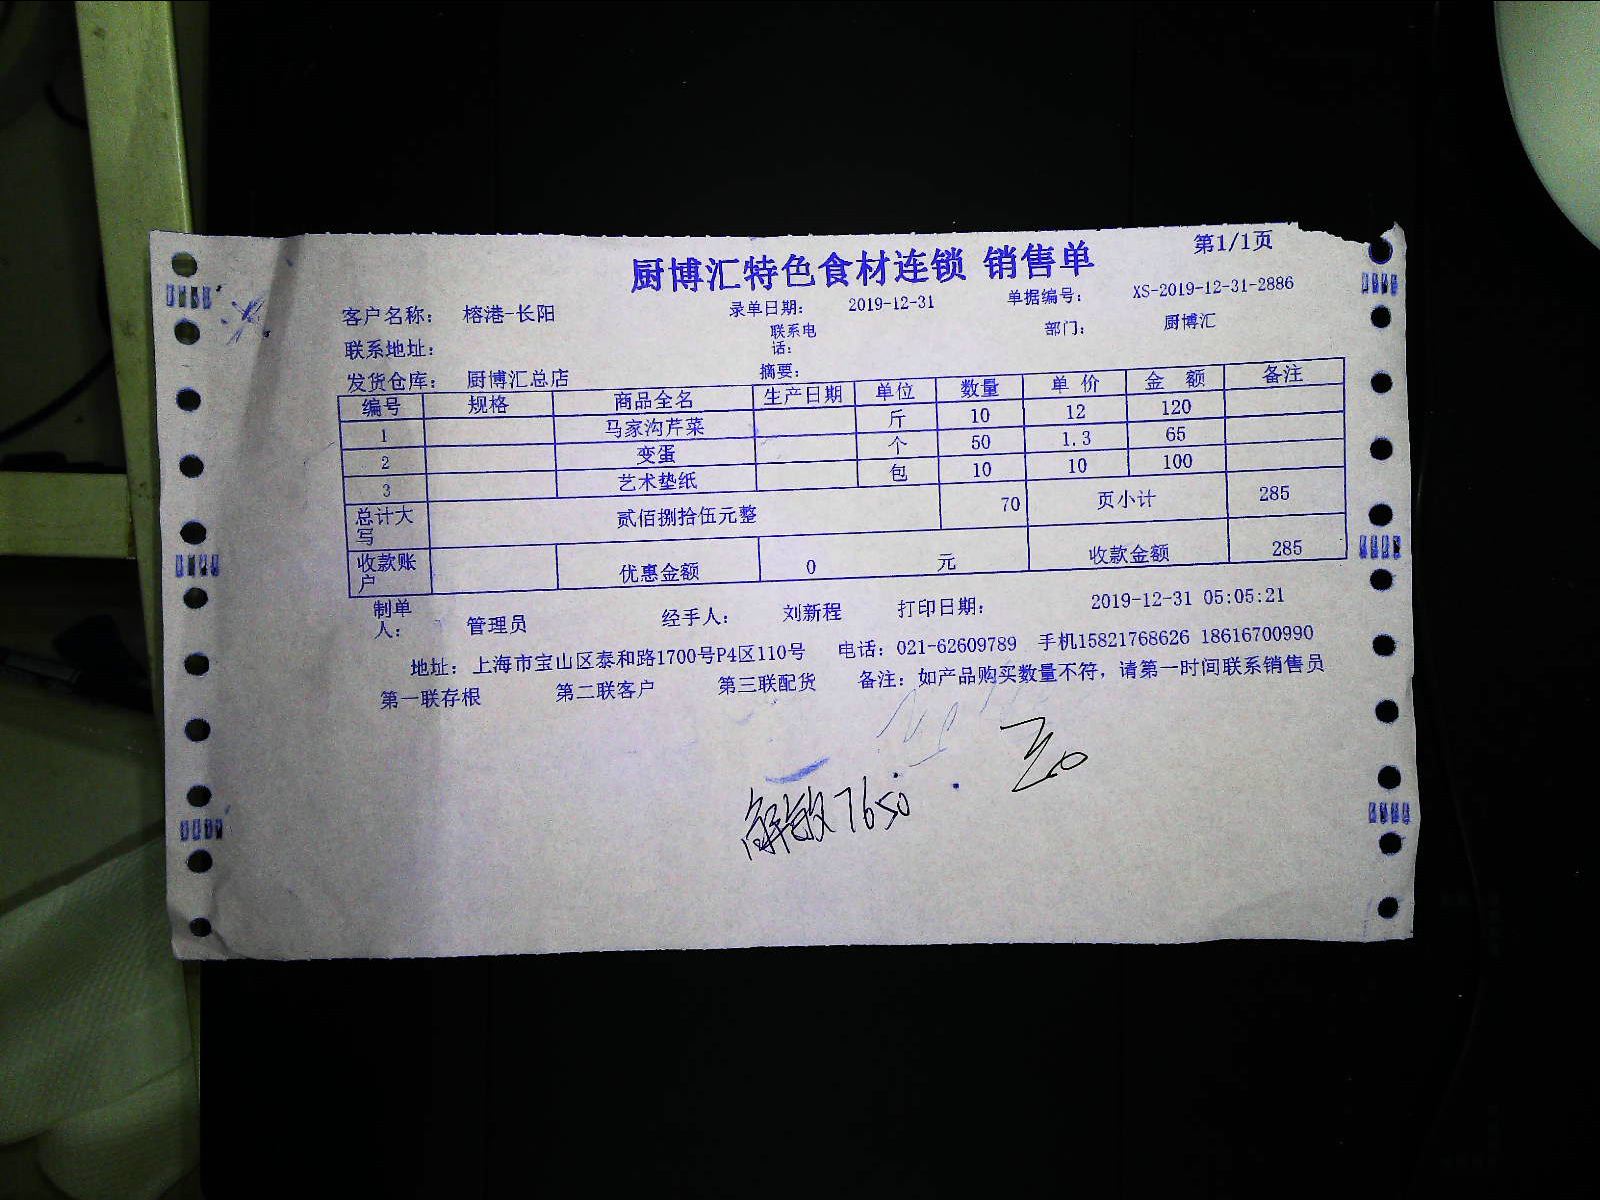 厨博汇特色食材连锁 销售单 第1/1页
客户名称： 榕港-长阳 录单日期： 2019-12-31 单据编号： XS-2019-12-31-2886
联系地址： 联系电话： 部门： 厨博汇
发货仓库： 厨博汇总店 摘要：
编号 规格 商品全名 生产日期 单位 数量 单 价 金 额 备注
1 马家沟芹菜 斤 10 12 120
2 变蛋 个 50 1.3 65
3 艺术垫纸 包 10 10 100
总计大写 贰佰捌拾伍元整 70 页小计 285
收款账户 优惠金额 0 元 收款金额 285
制单人： 管理员 经手人： 刘新程 打印日期： 2019-12-31 05:05:21
地址：上海市宝山区泰和路1700号P4区110号 电话：021-62609789 手机15821768626 18616700990
第一联存根 第二联客户 第三联配货 备注：如产品购买数量不符，请第一时间联系销售员
7650